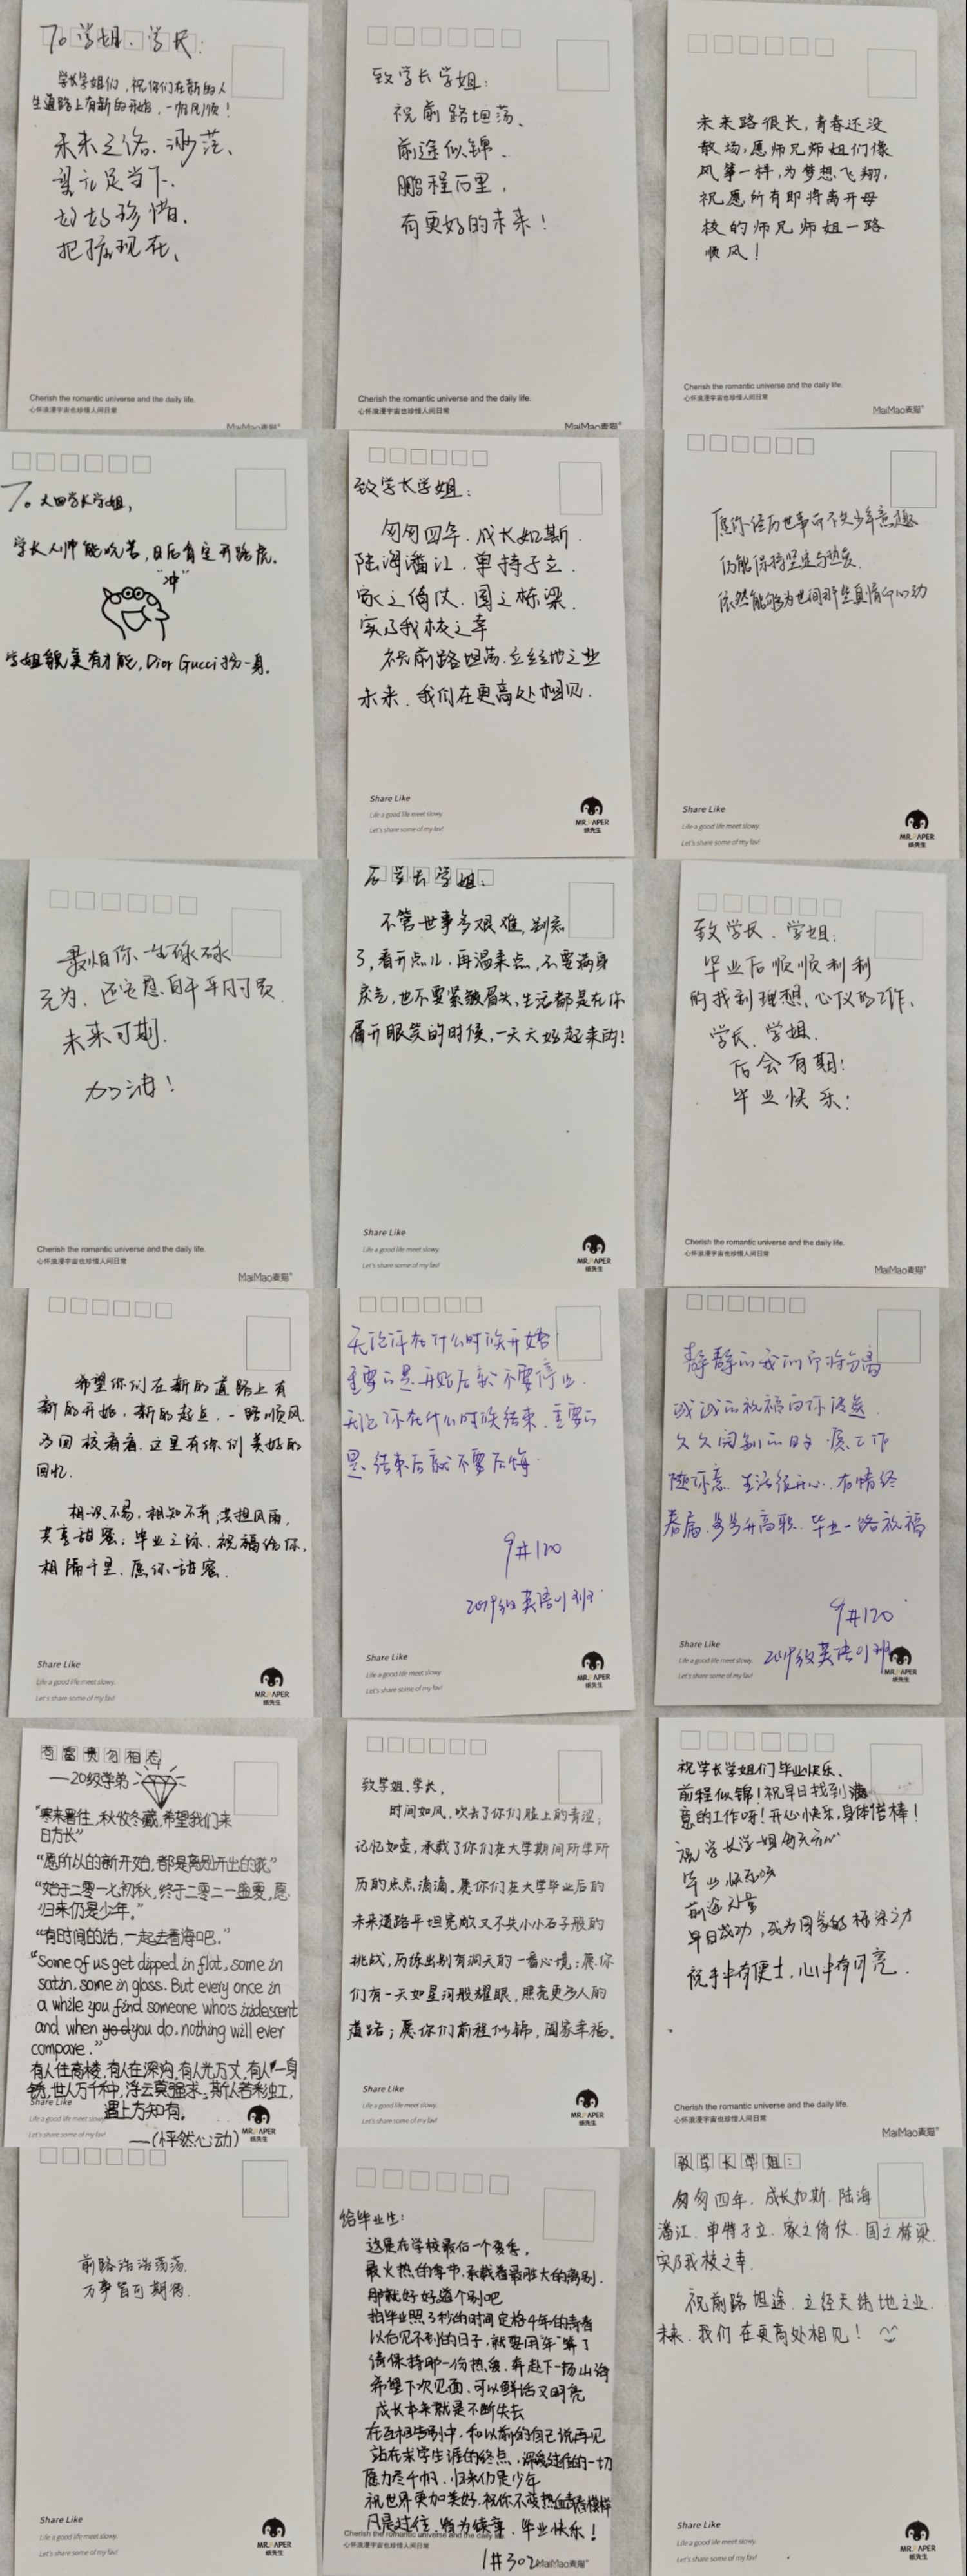 To 学姐、学长:
学长学姐们，祝你们在新的人
生道路上有新的开始，一帆风顺！
未来之路、渺茫、
望立足当下、
好好珍惜、
把握现在、
Cherish the romantic universe and the daily life.
心怀浪漫宇宙也珍惜人间日常
MaiMao麦猫
致学长学姐:
祝前路坦荡、
前途似锦、
鹏程万里，
有更好的未来！
Cherish the romantic universe and the daily life.
心怀浪漫宇宙也珍惜人间日常
MaiMao麦猫
未来路很长，青春还没
散场，愿师兄师姐们像
风筝一样，为梦想飞翔，
祝愿所有即将离开母
校的师兄师姐一路
顺风！
Cherish the romantic universe and the daily life.
心怀浪漫宇宙也珍惜人间日常
MaiMao麦猫
To 大四学长学姐，
学长人帅能吃苦，日后肯定开路虎。
"冲"
学姐貌美有才能，Dior Gucci扮一身。
致学长学姐:
匆匆四年，成长如斯.
陆海潘江，单特孑立.
家之倚仗，国之栋梁.
实乃我校之幸
祝前路坦荡，立经地之业
未来，我们在更高处相见.
Share Like
Life a good life meet slowy.
Let's share some of my fav!
MR.PAPER
纸先生
愿你经历世事而不失少年意趣
仍能保持坚定与热爱
依然能够为世间那些真情而心动
Share Like
Life a good life meet slowy.
Let's share some of my fav!
MR.PAPER
纸先生
最怕你一生碌碌
无为，还安慰自己平凡可贵.
未来可期.
加油！
Cherish the romantic universe and the daily life.
心怀浪漫宇宙也珍惜人间日常
MaiMao麦猫
学长学姐:
不管世事多艰难，别忘
了，看开点儿，再温柔点，不要满身
戾气，也不要紧皱眉头，生活都是在你
眉开眼笑的时候，一天天好起来的！
Share Like
Life a good life meet slowy.
Let's share some of my fav!
MR.PAPER
纸先生
致学长、学姐:
毕业后顺顺利利
的找到理想、心仪的工作、
学长、学姐、
后会有期！
毕业快乐！
Cherish the romantic universe and the daily life.
心怀浪漫宇宙也珍惜人间日常
MaiMao麦猫
希望你们在新的道路上有
新的开始，新的起点，一路顺风.
多回校看看，这里有你们美好的
回忆.
相识不易，相知不弃；共担风雨，
共享甜蜜；毕业之际，祝福给你，
相隔千里，愿你甜蜜.
Share Like
Life a good life meet slowy.
Let's share some of my fav!
MR.PAPER
纸先生
无论你在什么时候开始
重要的是开始后就不要停止.
无论你在什么时候结束，重要的
是结束后就不要后悔.
9#120
2019级英语01班
Share Like
Life a good life meet slowy.
Let's share some of my fav!
MR.PAPER
纸先生
静静的我们即将分离
诚诚的祝福向你传送.
久久阔别的日子 愿工作
随你意，生活很开心，有情终
眷属，步步升高职，毕业一路祝福
9#120
2019级英语01班
Share Like
Life a good life meet slowy.
Let's share some of my fav!
MR.PAPER
苟富贵勿相忘
——20级学弟
"寒来暑往，秋收冬藏，希望我们来
日方长"
"愿所以的新开始，都是离别开出的花"
"始于二零一七初秋，终于二零二一盛夏，愿
归来仍是少年。"
"有时间的话，一起去看海吧。"
"Some of us get dipped in flat, some in
satin, some in gloss. But every once in
a while you find someone who's iridescent
and when you do, nothing will ever
compare."
有人住高楼，有人在深沟，有人光万丈，有人一身
锈，世人万千种，浮云莫强求，斯人若彩虹，
遇上方知有。
——(怦然心动)
Share Like
Life a good life meet slowy.
Let's share some of my fav!
MR.PAPER
纸先生
致学姐、学长，
时间如风，吹去了你们脸上的青涩；
记忆如壶，承载了你们在大学期间所学所
历的点点滴滴。愿你们在大学毕业后的
未来道路平坦宽敞又不失小小石子般的
挑战，历练出别有洞天的一番心境；愿你
们有一天如星河般耀眼，照亮更多人的
道路；愿你们前程似锦，阖家幸福。
Share Like
Life a good life meet slowy.
Let's share some of my fav!
MR.PAPER
纸先生
祝学长学姐们毕业快乐、
前程似锦！祝早日找到满
意的工作呀！开心快乐，身体倍棒！
祝学长学姐每天开心
毕业快乐
早日成功，成为国家的栋梁之才
祝手中有便士，心中有月亮.
Cherish the romantic universe and the daily life.
心怀浪漫宇宙也珍惜人间日常
MaiMao麦猫
前路浩浩荡荡，
万事皆可期待.
Share Like
Life a good life meet slowy.
Let's share some of my fav!
MR.PAPER
纸先生
给毕业生:
这是在学校最后一个夏季，
最火热的季节，承载着最盛大的离别.
那就好好道个别吧
拍毕业照3秒的时间定格4年的青春
以后见不到的日子，就要用"年"算了
请保持那一份热爱，奔赴下一场山海
希望下次见面，可以鲜活又明亮
成长本来就是不断失去
在互相告别中，和以前的自己说再见
站在求学生涯的终点，深爱过往的一切
愿历尽千帆，归来仍是少年
祝世界更加美好，祝你不变热血青春模样
凡是过往，皆为序章，毕业快乐！
Cherish the romantic universe and the daily life.
心怀浪漫宇宙也珍惜人间日常
1#302
MaiMao麦猫
致学长学姐:
匆匆四年，成长如斯，陆海
潘江，单特孑立，家之倚仗，国之栋梁
实乃我校之幸.
祝前路坦途，立经天纬地之业.
未来，我们在更高处相见！
Share Like
Life a good life meet slowy.
Let's share some of my fav!
MR.PAPER
纸先生